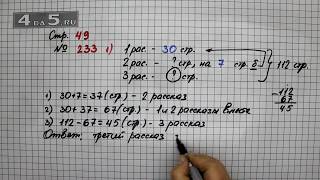 4 ДА 5.РУ
Стр. 49
№ 233 1) 1 рас. - 30 стр.
2 рас. - ? стр., на 7 стр. б.
3 рас. - ? стр.
112 стр.
1) 30+7=37 (стр.) - 2 рассказ
2) 30+37=67 (стр.) - 1 и 2 рассказы вместе
3) 112-67=45 (стр.) - 3 рассказ
Ответ: третий рассказ
-112
67
45